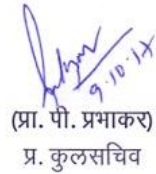 9.10.17
(प्रा. पी. प्रभाकर)
प्र. कुलसचिव